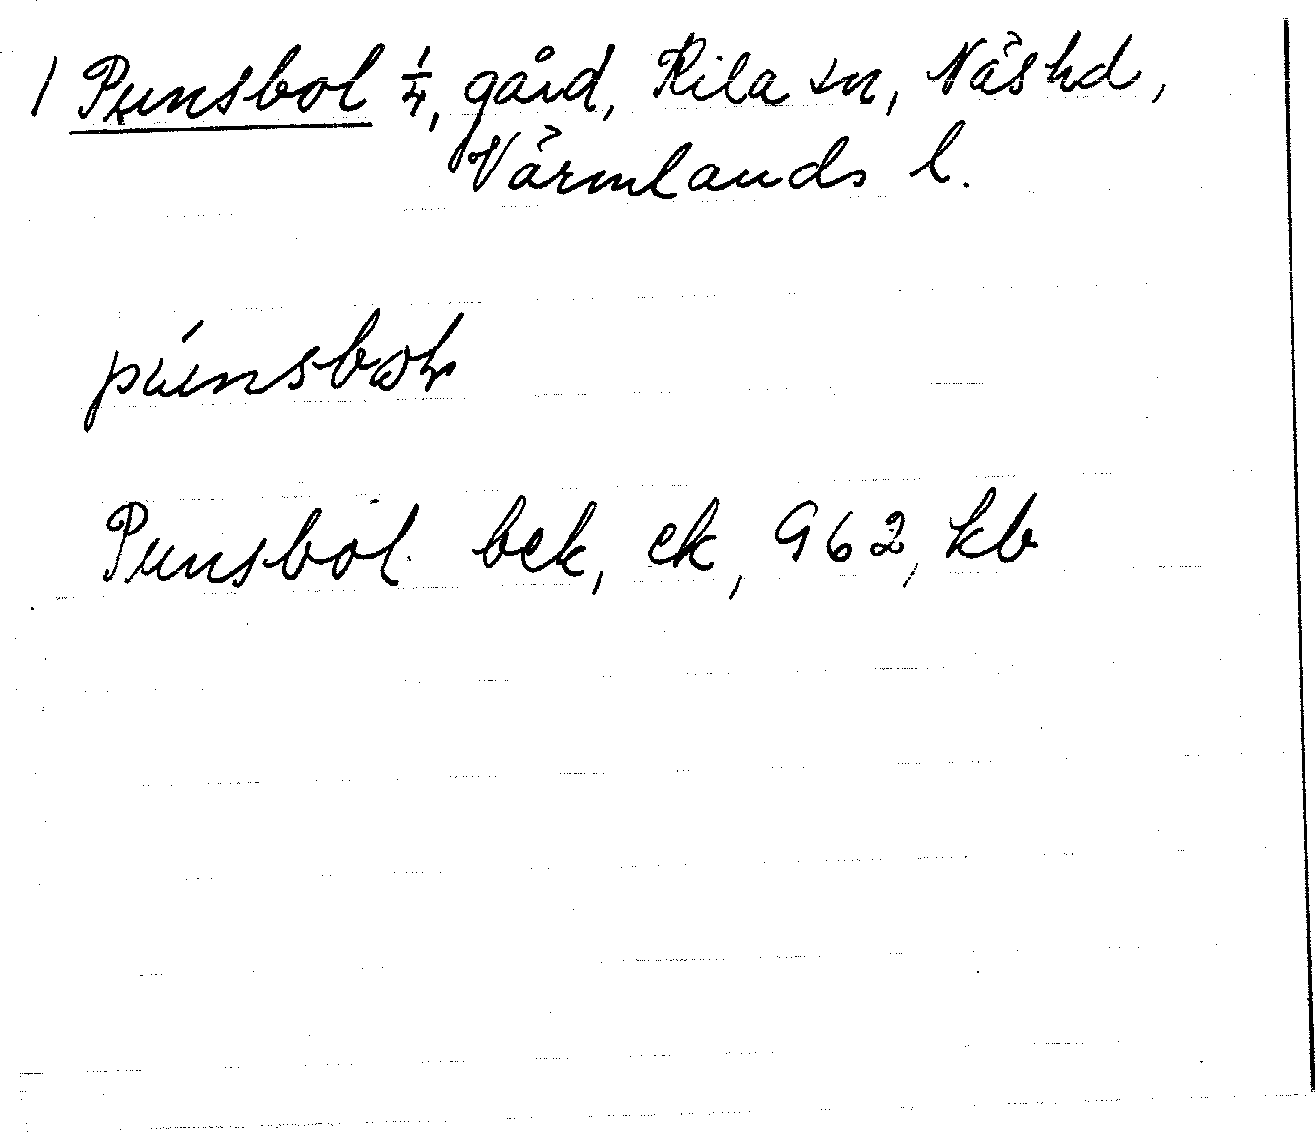 1 Punsbol 1/4, gård, Kila sn, Näs hd,
Värmlands l.
Punsbol bek, ek, 962, kb